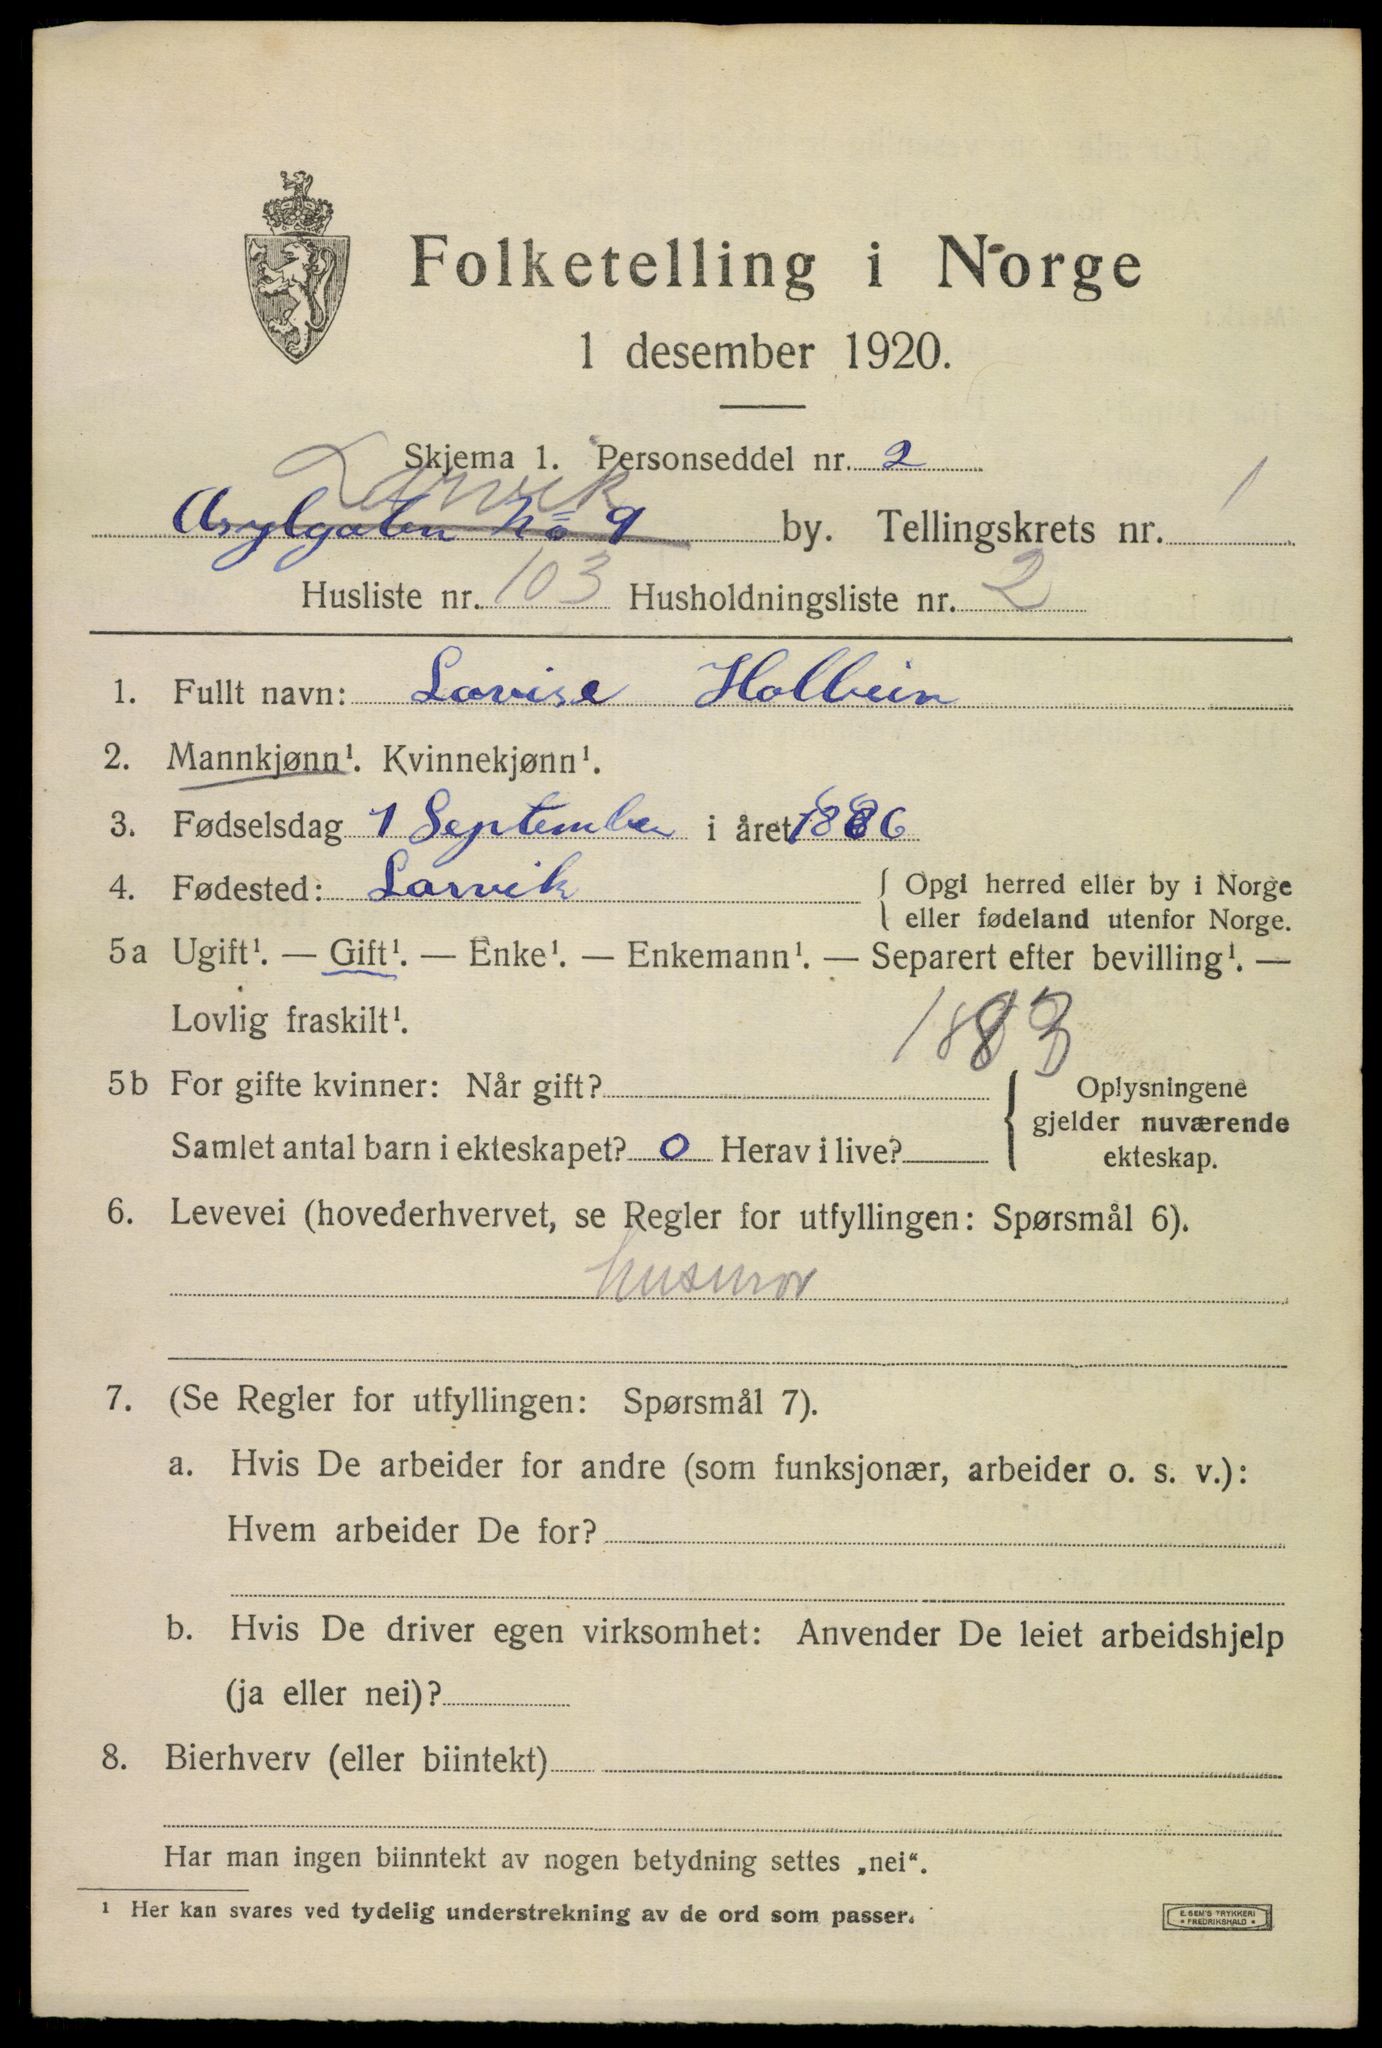 Folketelling i Norge
1 desember 1920.
Skjema 1. Personseddel nr. 2
Larvik
Asylgaten No 9 by. Tellingskrets nr. 1
Husliste nr. 103 Husholdningsliste nr. 2
1. Fullt navn: Lovise Holbein
2. Mannkjønn¹. Kvinnekjønn¹.
3. Fødselsdag 1 September i året
4. Fødested: Larvik { Opgi herred eller by i Norge
eller fødeland utenfor Norge.
5a Ugift¹. — Gift¹. — Enke¹. — Enkemann¹. — Separert efter bevilling¹. —
Lovlig fraskilt¹.
5b For gifte kvinner: Når gift? { Oplysningene
gjelder nuværende
Samlet antal barn i ekteskapet? 0 Herav i live? ekteskap.
6. Levevei (hovederhvervet, se Regler for utfyllingen: Spørsmål 6).
husmor
7. (Se Regler for utfyllingen: Spørsmål 7).
a. Hvis De arbeider for andre (som funksjonær, arbeider o. s. v.):
Hvem arbeider De for?
b. Hvis De driver egen virksomhet: Anvender De leiet arbeidshjelp
(ja eller nei)?
8. Bierhverv (eller biintekt)
Har man ingen biinntekt av nogen betydning settes „nei“.
¹ Her kan svares ved tydelig understrekning av de ord som passer.
E. SEM'S TRYKKERI
• FREDRIKSHALD •